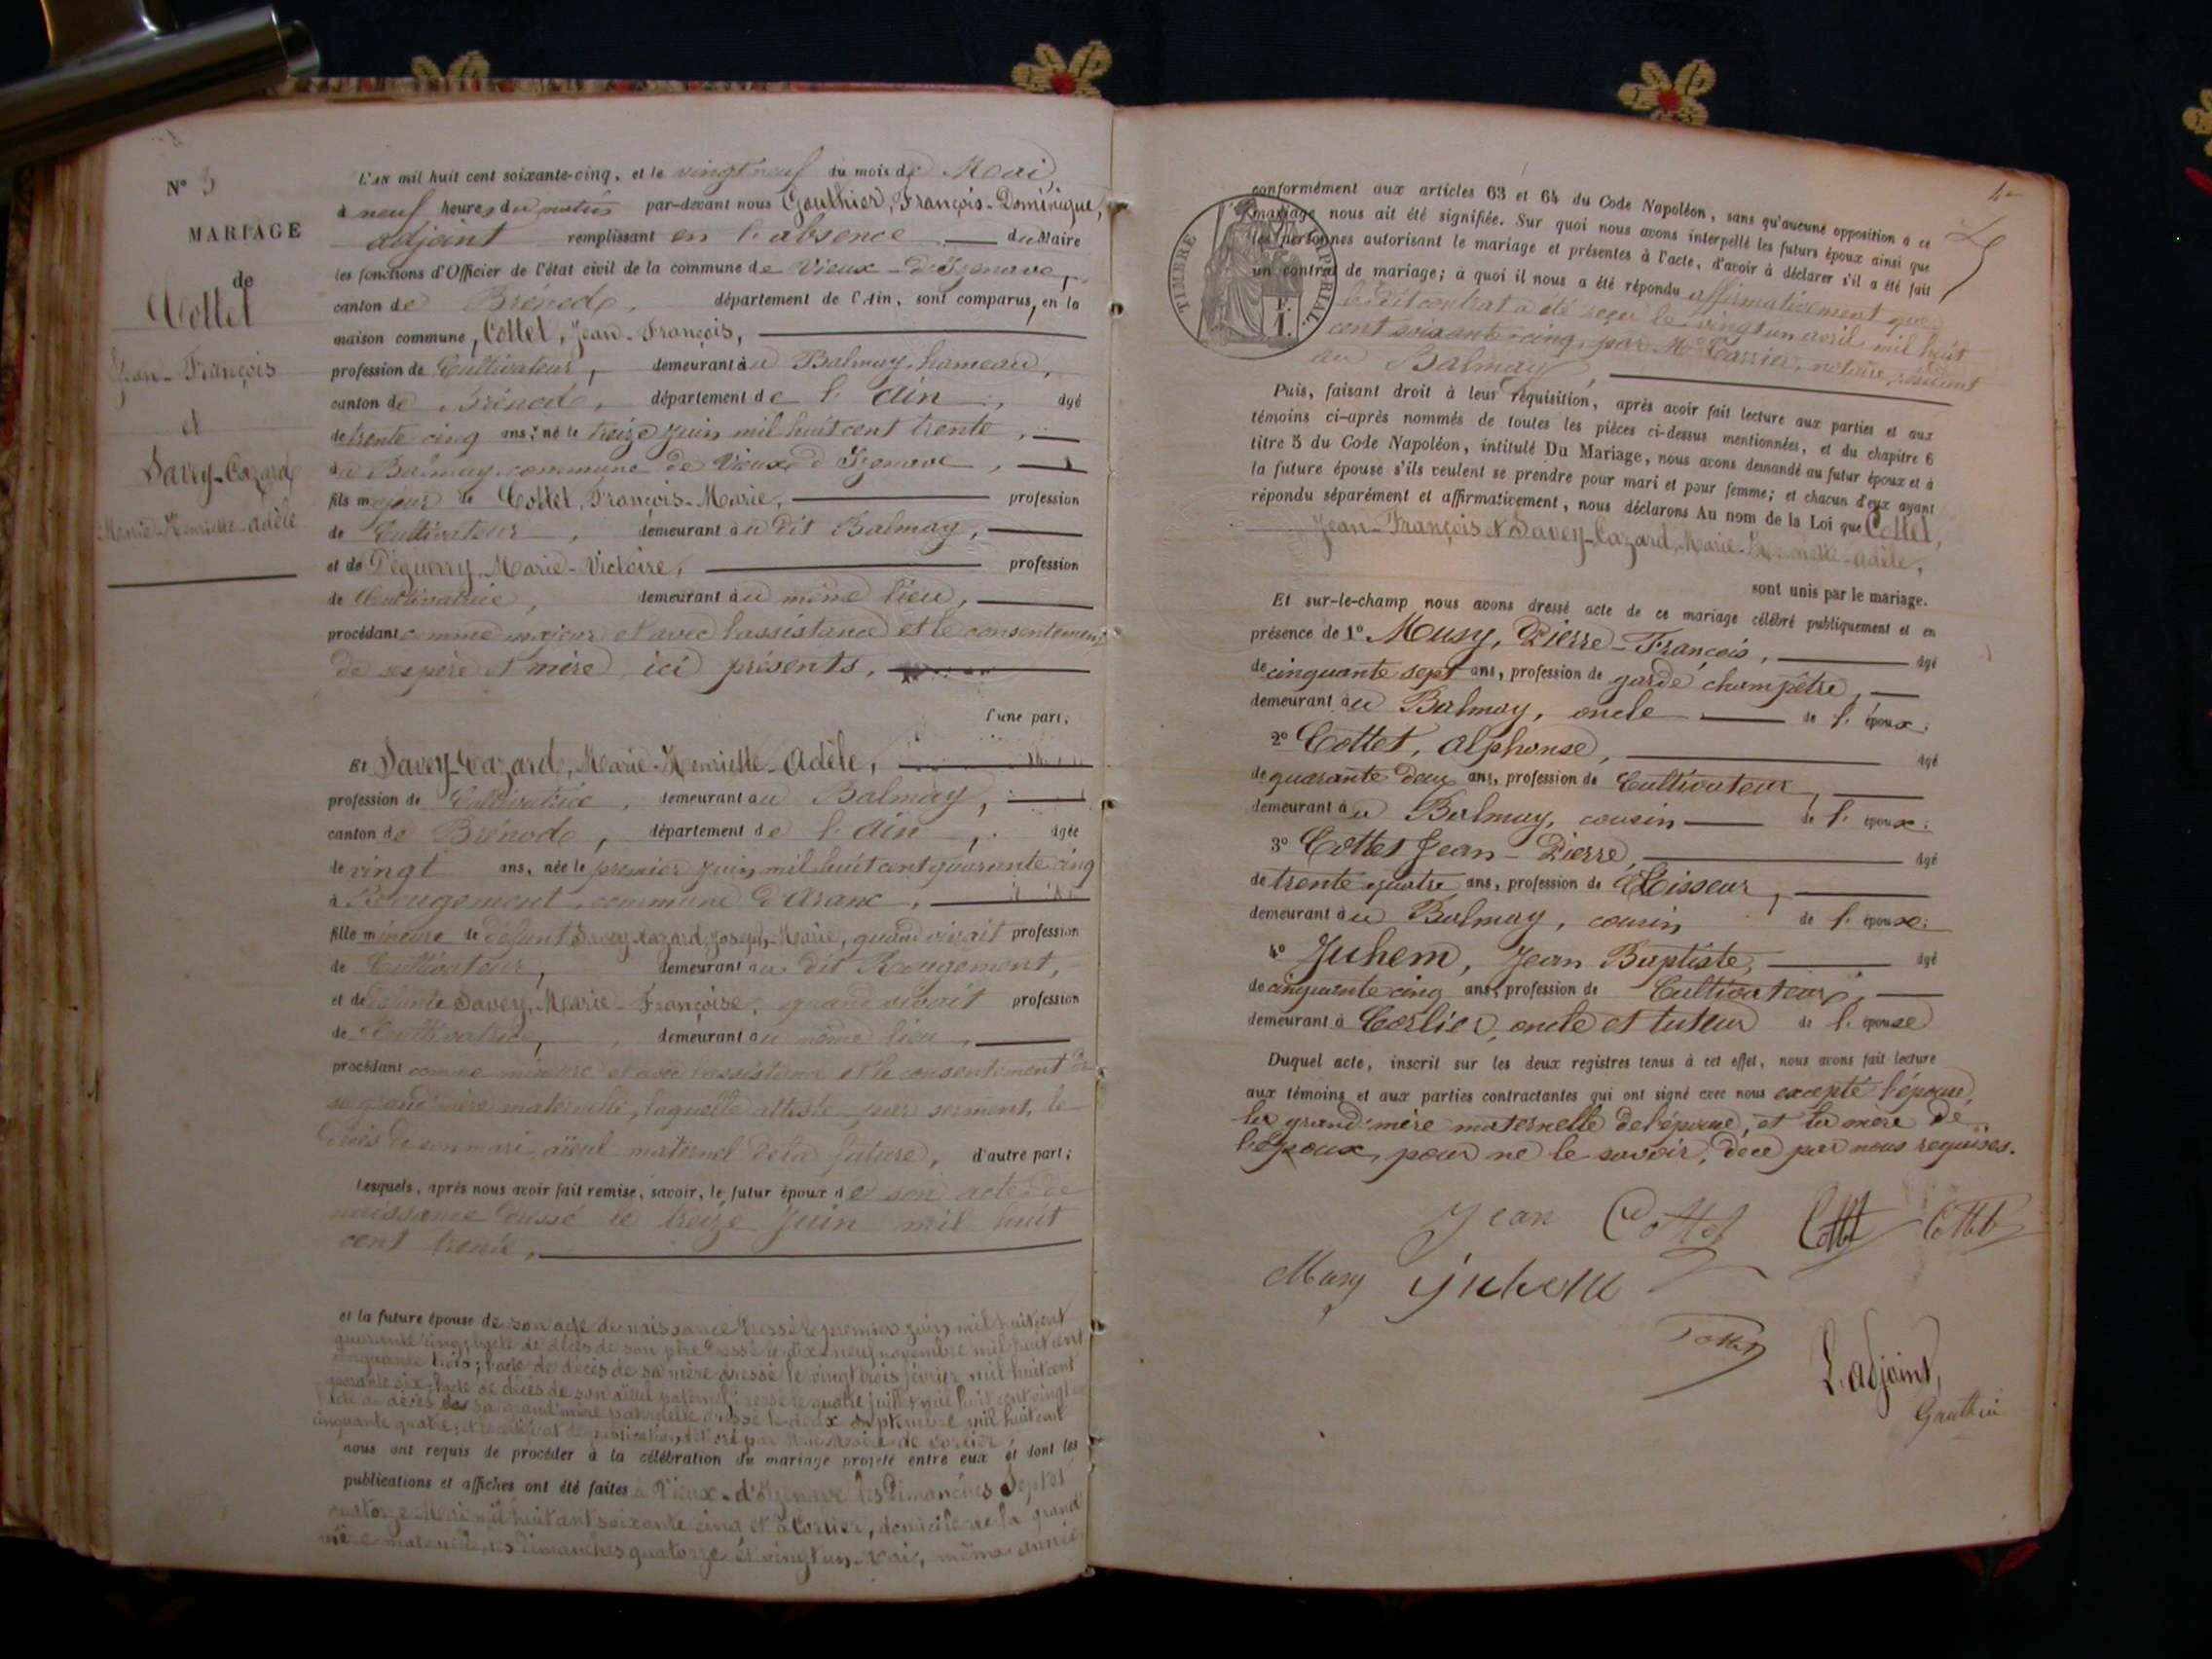 N° 5
MARIAGE
de
Cottet
Jean-François
et
Savey-Cazard
Marie-Henriette-Adèle
L'AN mil huit cent soixante-cinq, et le vingt neuf du mois de Mai
à neuf heures du matin par-devant nous Gauthier, François-Dominique,
adjoint remplissant en l'absence du Maire
les fonctions d'Officier de l'état civil de la commune de Vieux-d'Izenave,
canton de Brénod, département de l'Ain, sont comparus, en la
maison commune, Cottet, Jean-François,
profession de Cultivateur, demeurant au Balmay, hameau,
canton de Brénod, département de l'Ain, âgé
de trente cinq ans, né le treize juin mil huit cent trente,
au Balmay, commune de Vieux d'Izenave,
fils majeur de Cottet, François-Marie, profession
de Cultivateur, demeurant au dit Balmay,
et de Péguerry, Marie-Victoire, profession
de Cultivatrice, demeurant au même lieu,
procédant comme majeur et avec l'assistance et le consentement
de ses père et mère ici présents,
d'une part;
Et Savey-Cazard, Marie-Henriette-Adèle,
profession de Cultivatrice, demeurant au Balmay,
canton de Brénod, département de l'Ain, âgée
de vingt ans, née le premier juin mil huit cent quarante cinq
à Rougemont, commune d'Aranc,
fille mineure de défunt Savey-Cazard, Joseph-Marie, quand vivait profession
de Cultivateur, demeurant au dit Rougemont,
et de défunte Savey, Marie-Françoise, quand vivait profession
de Cultivatrice, demeurant au même lieu,
procédant comme mineure et avec l'assistance et le consentement de
sa grand'mère maternelle, laquelle atteste par serment, le
décès de son mari, aïeul maternel de la future, d'autre part;
Lesquels, après nous avoir fait remise, savoir, le futur époux de son acte de
naissance dressé le treize juin mil huit
cent trente,
et la future épouse de son acte de naissance dressé le premier juin mil huit cent
quarante cinq; l'acte de décès de son père dressé le dix-neuf novembre mil huit cent
cinquante trois; l'acte de décès de sa mère dressé le vingt trois février mil huit cent
quarante six; l'acte de décès de son aïeul paternel dressé le quatre juillet mil huit cent vingt
l'acte de décès de sa grand'mère paternelle dressé le deux septembre mil huit cent
cinquante quatre; et le certificat de publication délivré par Maire de Corlier;
nous ont requis de procéder à la célébration du mariage projeté entre eux et dont les
publications et affiches ont été faites à Vieux-d'Izenave les Dimanches Sept et
quatorze Mai mil huit cent soixante cinq et à Corlier, domicile de la grand'
mère maternelle, les dimanches quatorze et vingt un Mai, même année
TIMBRE IMPÉRIAL
F.
1.
conformément aux articles 63 et 64 du Code Napoléon, sans qu'aucune opposition à ce
mariage nous ait été signifiée. Sur quoi nous avons interpellé les futurs époux ainsi que
les personnes autorisant le mariage et présentes à l'acte, d'avoir à déclarer s'il a été fait
un contrat de mariage; à quoi il nous a été répondu affirmativement que
le dit contrat a été reçu le vingt un avril mil huit
cent soixante-cinq, par Me Carrier, notaire, résidant
au Balmay,
Puis, faisant droit à leur réquisition, après avoir fait lecture aux parties et aux
témoins ci-après nommés de toutes les pièces ci-dessus mentionnées, et du chapitre 6
titre 5 du Code Napoléon, intitulé Du Mariage, nous avons demandé au futur époux et à
la future épouse s'ils veulent se prendre pour mari et pour femme; et chacun d'eux ayant
répondu séparément et affirmativement, nous déclarons Au nom de la Loi que Cottet,
Jean-François & Savey-Cazard, Marie-Henriette-Adèle,
sont unis par le mariage.
Et sur-le-champ nous avons dressé acte de ce mariage célébré publiquement et en
présence de 1° Musy, Pierre-François, âgé
de cinquante sept ans, profession de garde champêtre,
demeurant au Balmay, oncle de l'époux;
2° Cottet, Alphonse, âgé
de quarante deux ans, profession de Cultivateur,
demeurant au Balmay, cousin de l'époux;
3° Cottet Jean-Pierre, âgé
de trente quatre ans, profession de Tisseur,
demeurant au Balmay, cousin de l'époux;
4° Juhem, Jean Baptiste, âgé
de cinquante cinq ans, profession de Cultivateur,
demeurant à Corlier, oncle et tuteur de l'épouse
Duquel acte, inscrit sur les deux registres tenus à cet effet, nous avons fait lecture
aux témoins et aux parties contractantes qui ont signé avec nous excepté l'épouse,
la grand'mère maternelle de l'épouse, et la mère de
l'époux, pour ne le savoir, de ce par nous requises.
Jean Cottet Cottet Cottet
Musy Juhem
Cottet
L'adjoint,
Gauthier